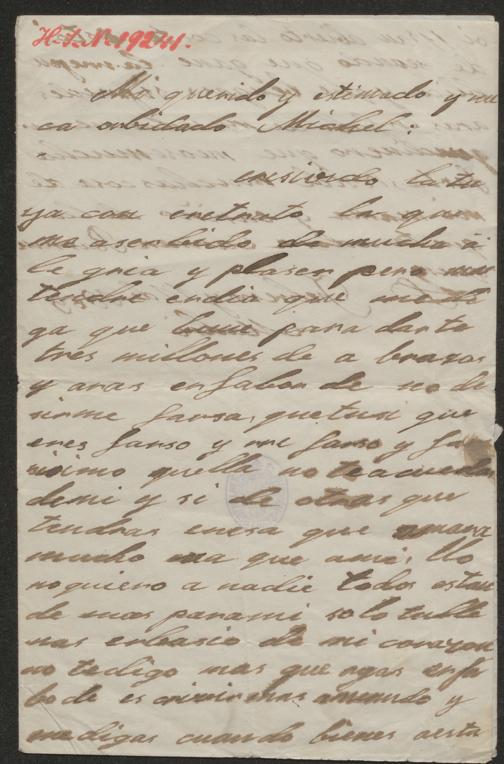 H.I.N. 19241.
Mi querido y estimado y nu
ca orbidado Michel:
resivido la tu
ya con eretrato la que
me a serbido de mucha a
le gria y plaser pero no
tendre endia que me di
ga que biene para darte
tres millones de a brazos
y aras enfabor de no de
sirme farsa, quetusi que
eres farso y re farso y fa
sisimo quella no teacuerdas
demi y si de otras que
tendras enesa que amara
mucho ma que ami, llo
no quiero a nadie todos estan
de mas parami solo tulle
nas enbasio de mi corazon
no tedigo mas que agas enfa
bo de escrivirmas amenudo y
medigas cuando bienes aesta